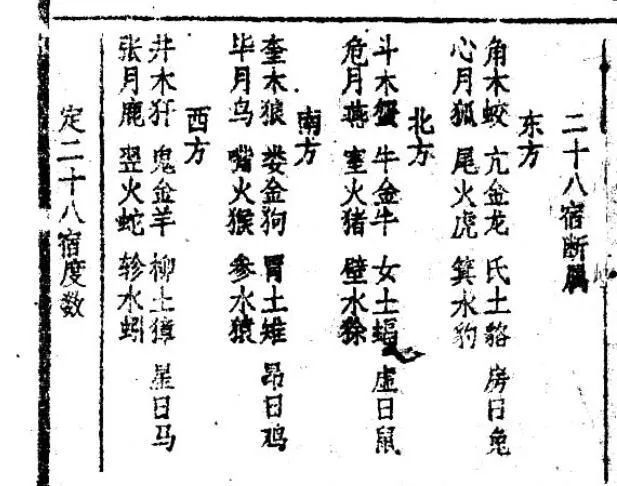 二十八宿断属
东方
角木蛟 亢金龙 氏土貉 房日兔
心月狐 尾火虎 箕水豹
北方
斗木蟹 牛金牛 女土蝠 虚日鼠
危月燕 室火猪 壁水
南方
奎木狼 娄金狗 胃土雉 昂日鸡
毕月乌 嘴火猴 参水猿
西方
井木犴 鬼金羊 柳土獐 星日马
张月鹿 翌火蛇 轸水蚓
定二十八宿度数